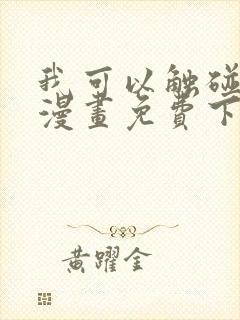 我可以触碰
漫畫免費下
黃躍金